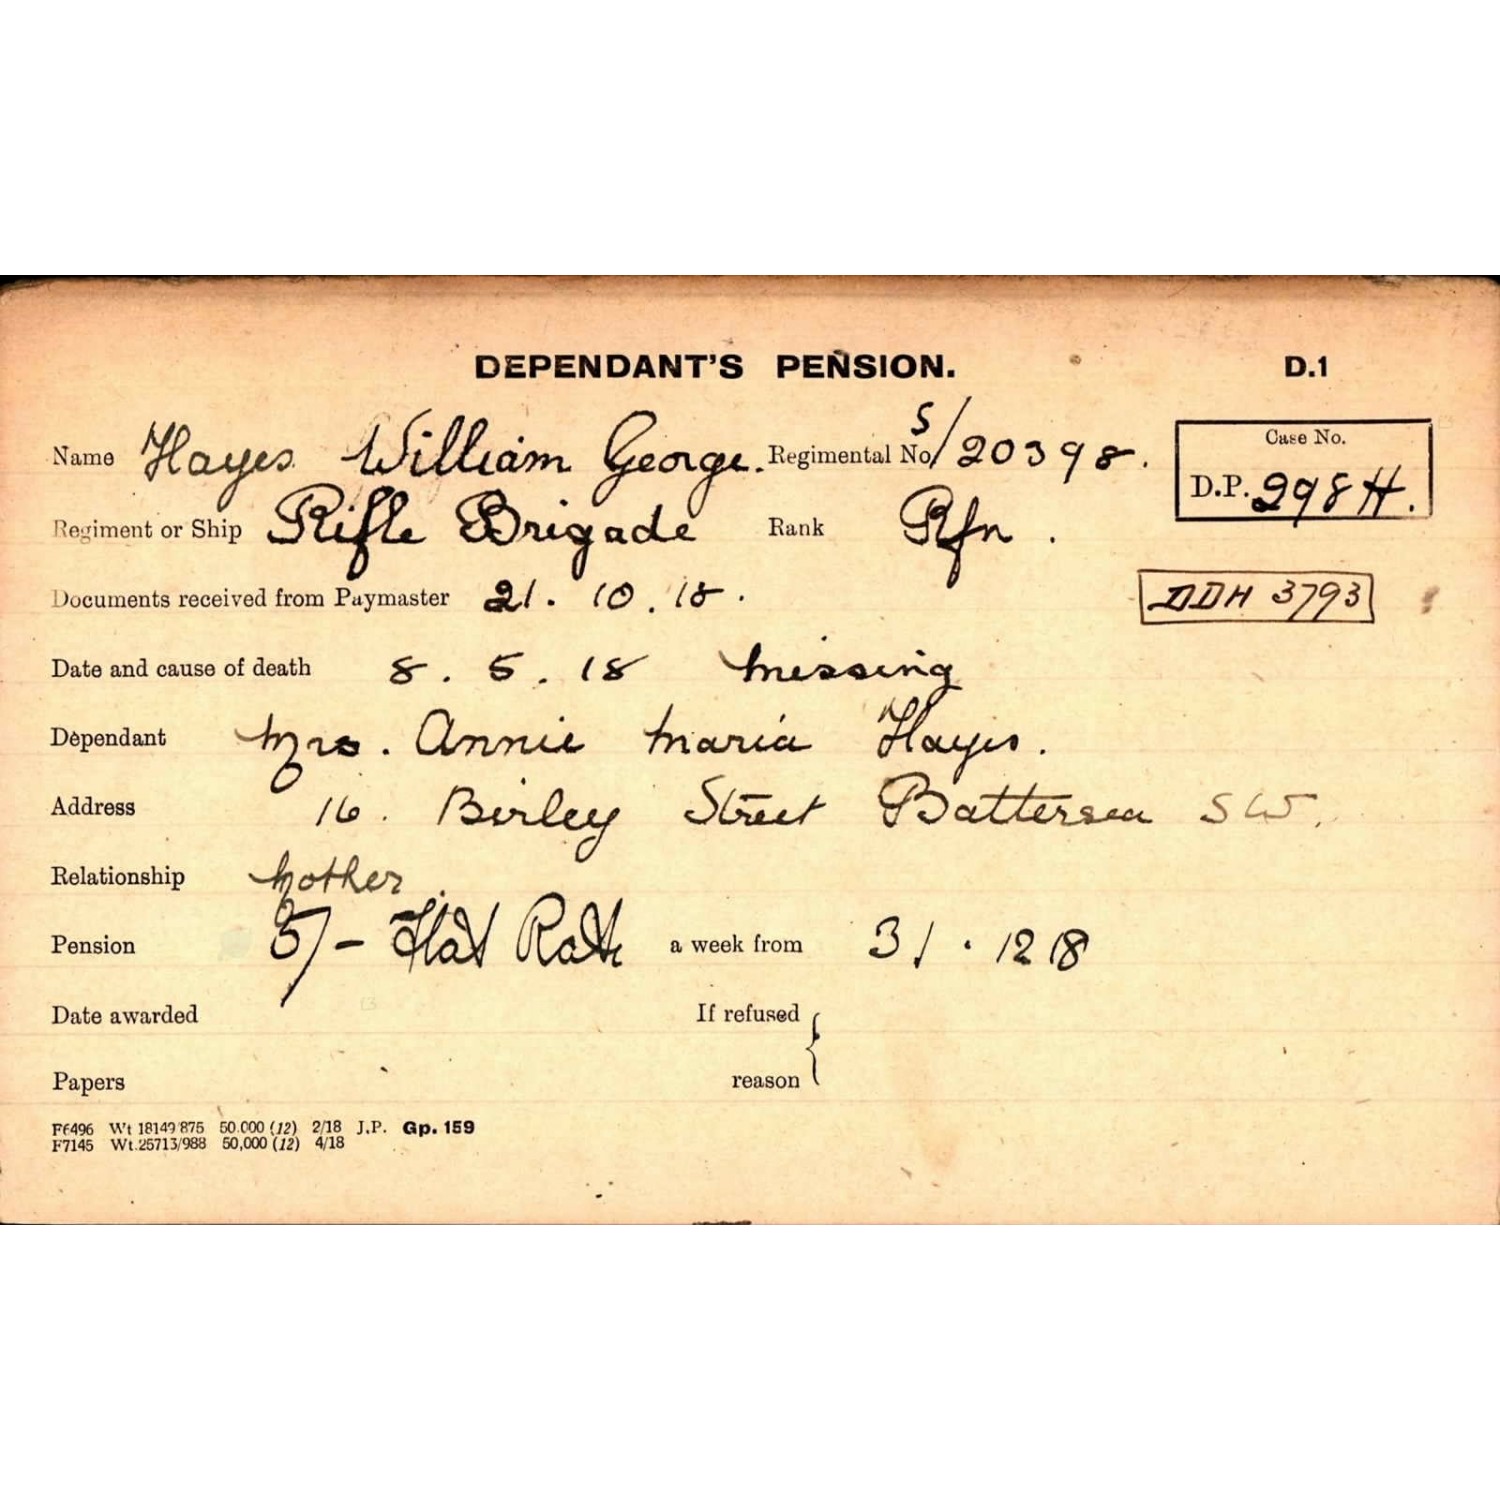 DEPENDANT'S PENSION. D.1
Name Hayes William George. Regimental No S/20398. Case No. D.P. 298H.
Regiment or Ship Rifle Brigade Rank Rfn.
Documents received from Paymaster 21.10.18. DDH 3793
Date and cause of death 8.5.18 missing
Dependant Mrs. Annie Maria Hayes.
Address 16. Birley Street Battersea SW.
Relationship Mother
Pension 5/- Flat Rate a week from 31.12 18
Date awarded If refused
Papers reason
F6496 Wt 18149/875 50.000 (12) 2/18 J.P. Gp. 159
F7145 Wt.25713/988 50,000 (12) 4/18